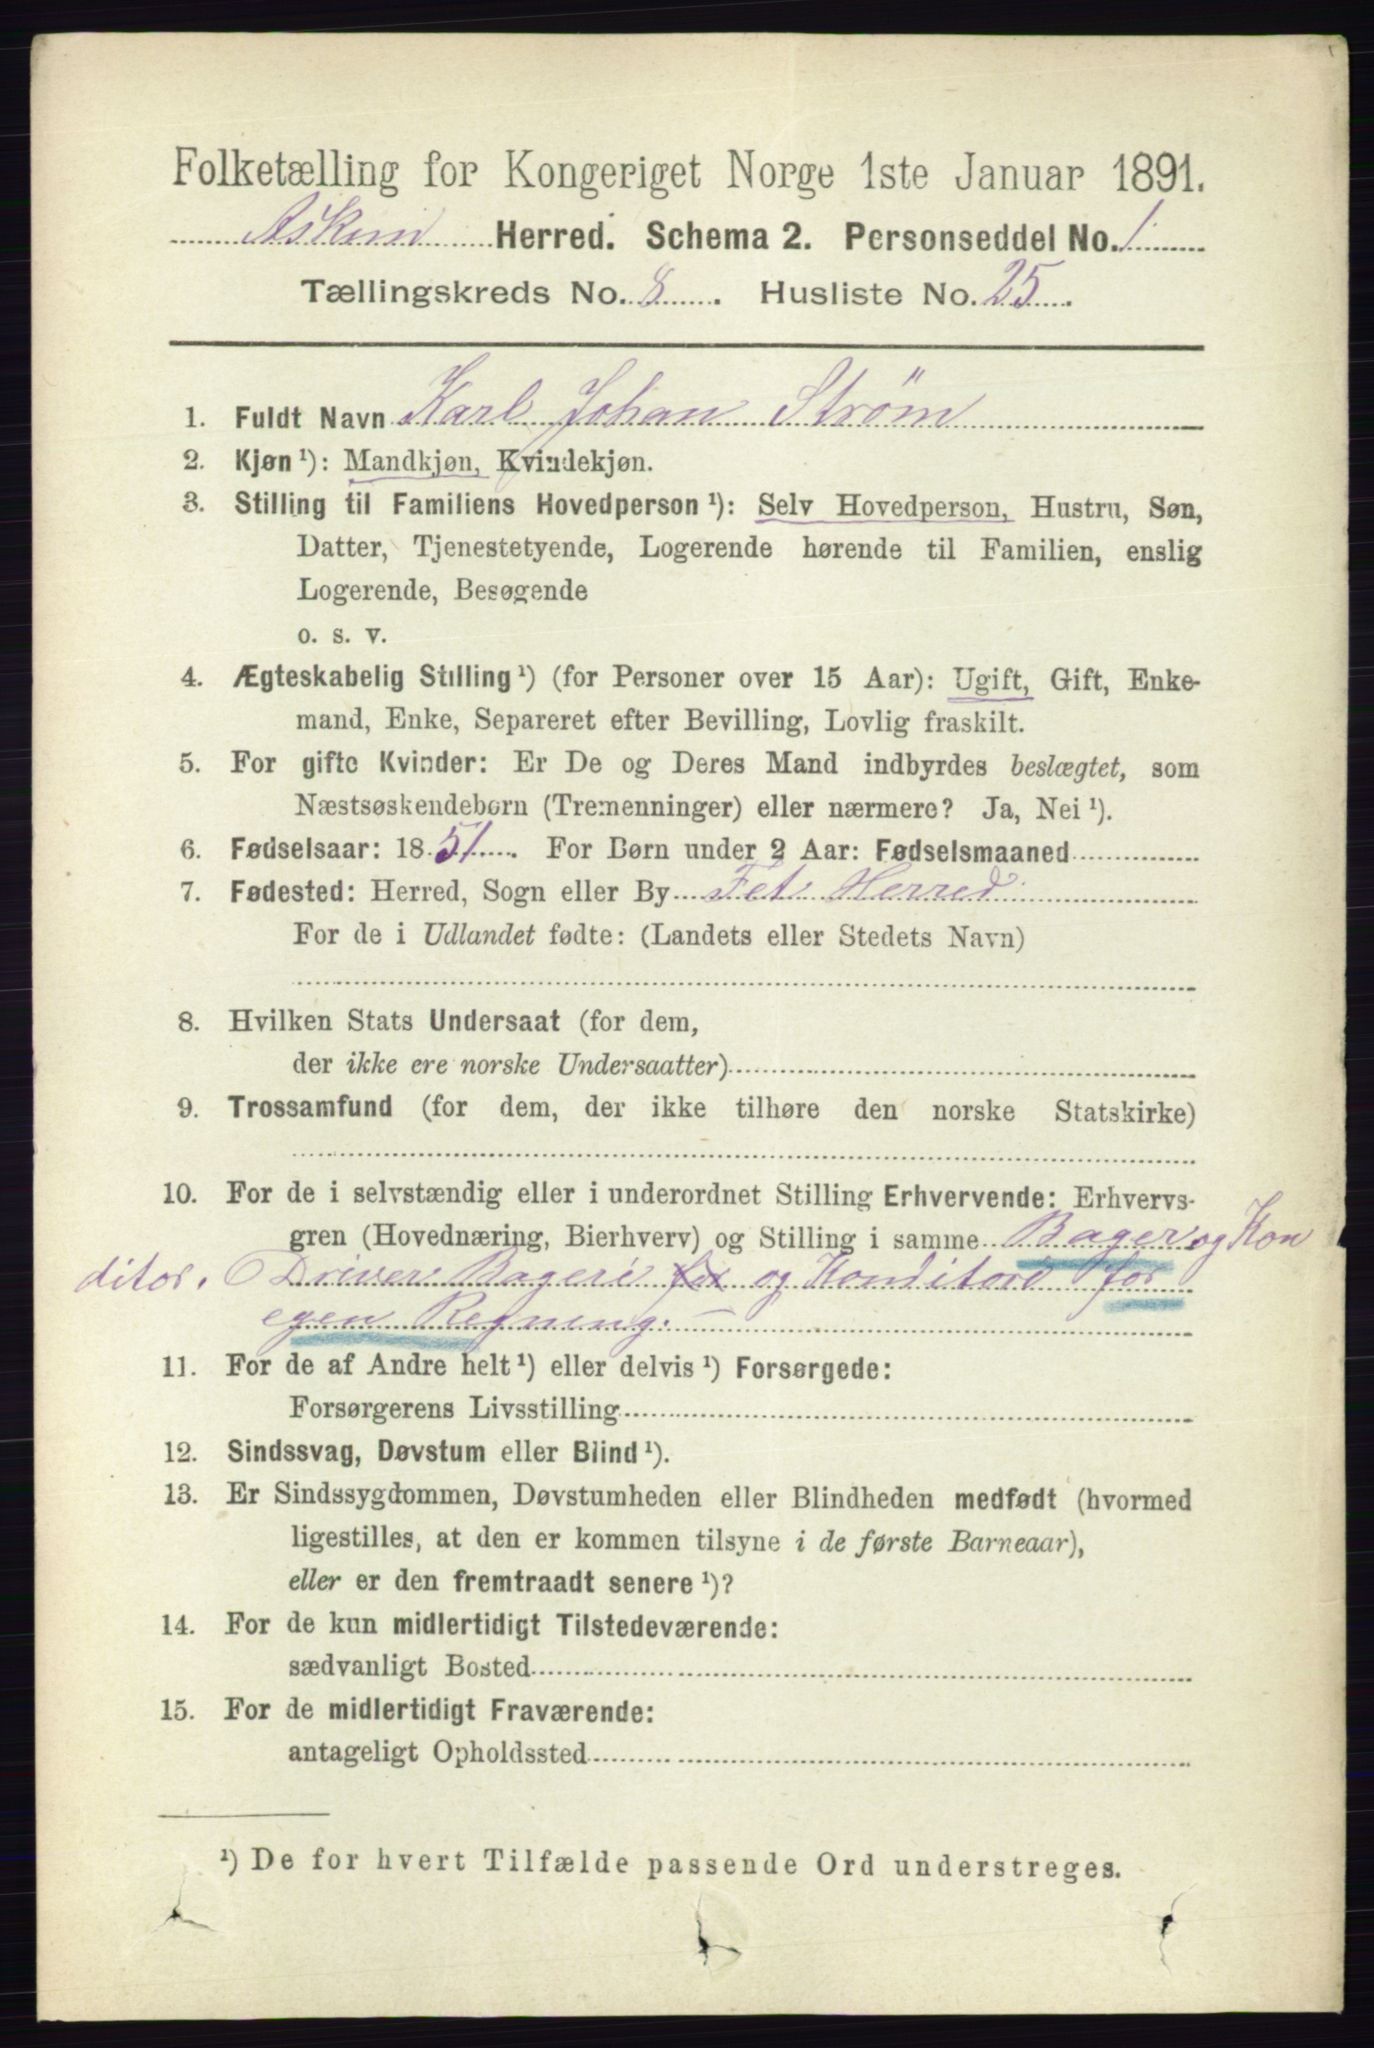 Folketælling for Kongeriget Norge 1ste Januar 1891.
Askim Herred. Schema 2. Personseddel No. 1
Tællingskreds No. 8. Husliste No. 25.
1. Fuldt Navn Karl Johan Strøm
2. Kjøn ¹): Mandkjøn, Kvindekjøn.
3. Stilling til Familiens Hovedperson ¹): Selv Hovedperson, Hustru, Søn,
Datter, Tjenestetyende, Logerende hørende til Familien, enslig
Logerende, Besøgende
o. s. v.
4. Ægteskabelig Stilling ¹) (for Personer over 15 Aar): Ugift, Gift, Enke-
mand, Enke, Separeret efter Bevilling, Lovlig fraskilt.
5. For gifte Kvinder: Er De og Deres Mand indbyrdes beslægtet, som
Næstsøskendebørn (Tremenninger) eller nærmere? Ja, Nei ¹).
6. Fødselsaar: 1851. For Børn under 2 Aar: Fødselsmaaned
7. Fødested: Herred, Sogn eller By Fet Herred
For de i Udlandet fødte: (Landets eller Stedets Navn)
8. Hvilken Stats Undersaat (for dem,
der ikke ere norske Undersaatter)
9. Trossamfund (for dem, der ikke tilhøre den norske Statskirke)
10. For de i selvstændig eller i underordnet Stilling Erhvervende: Erhvervs-
gren (Hovednæring, Bierhverv) og Stilling i samme Bager og Kon
ditor. Driver Bageri for og Konditori for
egen Regning. —
11. For de af Andre helt ¹) eller delvis ¹) Forsørgede:
Forsørgerens Livsstilling
12. Sindssvag, Døvstum eller Blind ¹).
13. Er Sindssygdommen, Døvstumheden eller Blindheden medfødt (hvormed
ligestilles, at den er kommen tilsyne i de første Barneaar),
eller er den fremtraadt senere ¹)?
14. For de kun midlertidigt Tilstedeværende:
sædvanligt Bosted
15. For de midlertidigt Fraværende:
antageligt Opholdssted
¹) De for hvert Tilfælde passende Ord understreges.